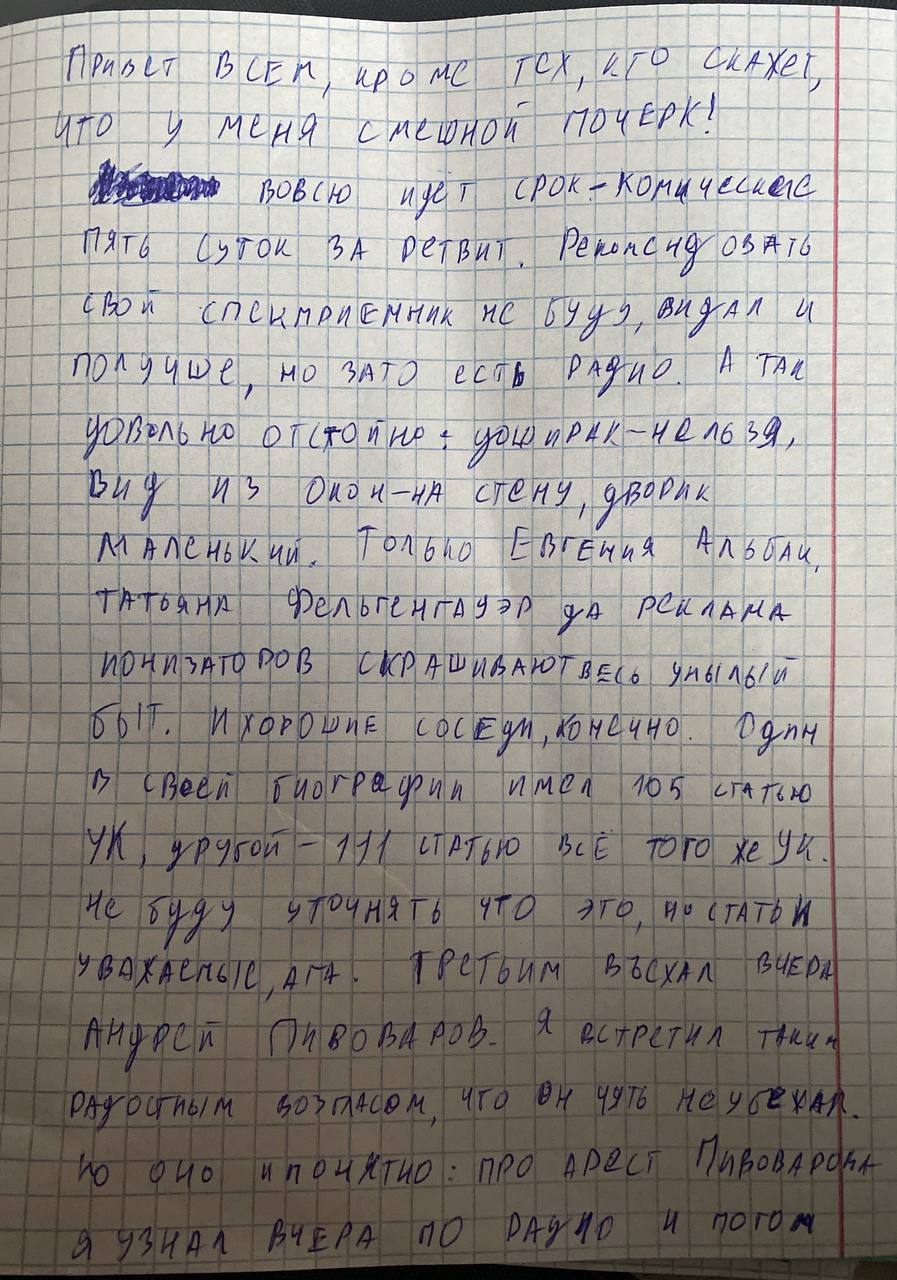 Привет всем, кроме тех, кто скажет,
что у меня смешной почерк!
вовсю идёт срок - комические
пять суток за ретвит. Рекомендовать
свой спецприемник не буду, видал и
получше, но зато есть радио. А так
довольно отстойно: доширак - нельзя,
вид из окон - на стену, дворик
маленький. Только Евгения Альбац,
Татьяна Фельгенгауэр да реклама
ионизаторов скрашивают весь унылый
быт. И хорошие соседи, конечно. Один
в своей биографии имел 105 статью
УК, другой - 111 статью всё того же УК.
Не буду уточнять что это, но статьи
уважаемые, ага. Третьим въехал вчера
Андрей Пивоваров. Я встретил таким
радостным возгласом, что он чуть не убежал.
Но оно и понятно: про арест Пивоварова
я узнал вчера по радио и потом